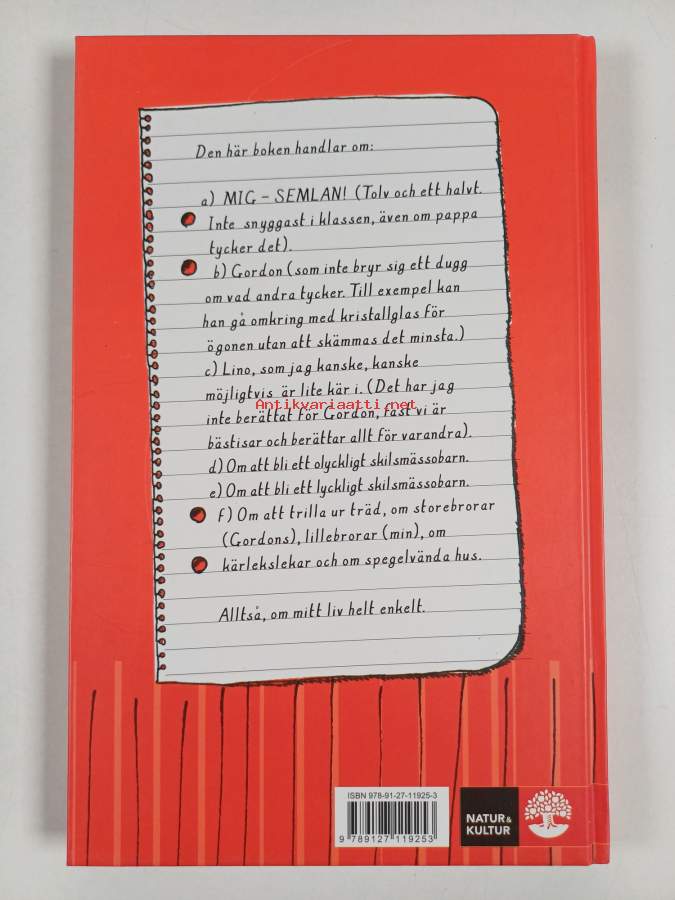 Den här boken handlar om:
a) MIG – SEMLAN! (Tolv och ett halvt.
Inte snyggast i klassen, även om pappa
tycker det).
b) Gordon (som inte bryr sig ett dugg
om vad andra tycker. Till exempel kan
han gå omkring med kristallglas för
ögonen utan att skämmas det minsta.)
c) Lino, som jag kanske, kanske
möjligtvis är lite kär i. (Det har jag
Antikvariaatti.net
inte berättat för Gordon, fast vi är
bästisar och berättar allt för varandra).
d) Om att bli ett olyckligt skilsmässobarn.
e) Om att bli ett lyckligt skilsmässobarn.
f) Om att trilla ur träd, om storebrorar
(Gordons), lillebrorar (min), om
kärlekslekar och om spegelvända hus.
Alltså, om mitt liv helt enkelt.
ISBN 978-91-27-11925-3
9 789127 119253
NATUR &
KULTUR